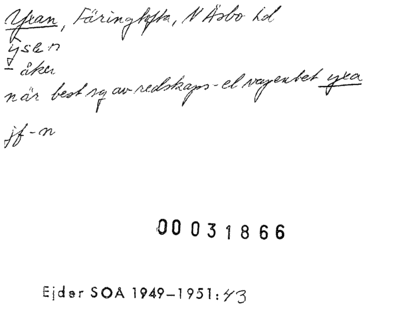 Yxan, Färingtofta, N Åsbo hd
ysen
– åker
när best sg av redskaps- el vapenbet yxa
jf -n
00031866
Ejder SOA 1949–1951:43